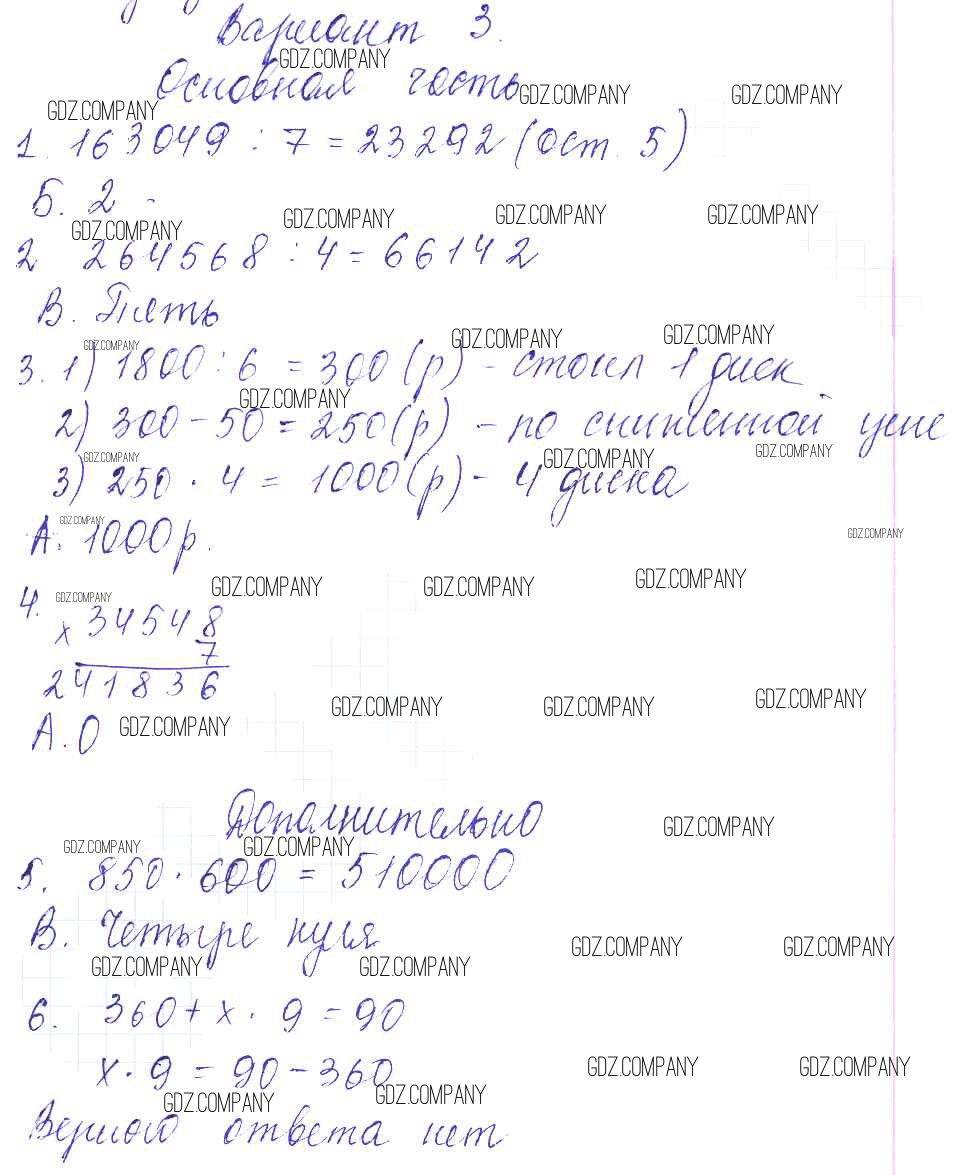 Вариант 3.
GDZ.COMPANY
Основная часть
GDZ.COMPANY GDZ.COMPANY
GDZ.COMPANY
1. 163049 : 7 = 23292 (ост. 5)
Б. 2
GDZ.COMPANY GDZ.COMPANY GDZ.COMPANY GDZ.COMPANY
2 264568 : 4 = 66142
В. Пять
GDZ.COMPANY GDZ.COMPANY GDZ.COMPANY
3. 1) 1800 : 6 = 300 (р) - стоил 1 диск
GDZ.COMPANY
2) 300 - 50 = 250 (р) - по сниженной цене
GDZ.COMPANY GDZ.COMPANY GDZ.COMPANY
3) 250 · 4 = 1000 (р) - 4 диска
GDZ.COMPANY GDZ.COMPANY
А. 1000 р.
GDZ.COMPANY GDZ.COMPANY GDZ.COMPANY GDZ.COMPANY
4. x 34548
7
241836
GDZ.COMPANY GDZ.COMPANY GDZ.COMPANY
А. 0 GDZ.COMPANY
Дополнительно
GDZ.COMPANY GDZ.COMPANY GDZ.COMPANY
5. 850 · 600 = 510000
В. Четыре нуля
GDZ.COMPANY GDZ.COMPANY
GDZ.COMPANY GDZ.COMPANY
6. 360 + x · 9 = 90
x · 9 = 90 - 360
GDZ.COMPANY GDZ.COMPANY
GDZ.COMPANY GDZ.COMPANY
Верного ответа нет